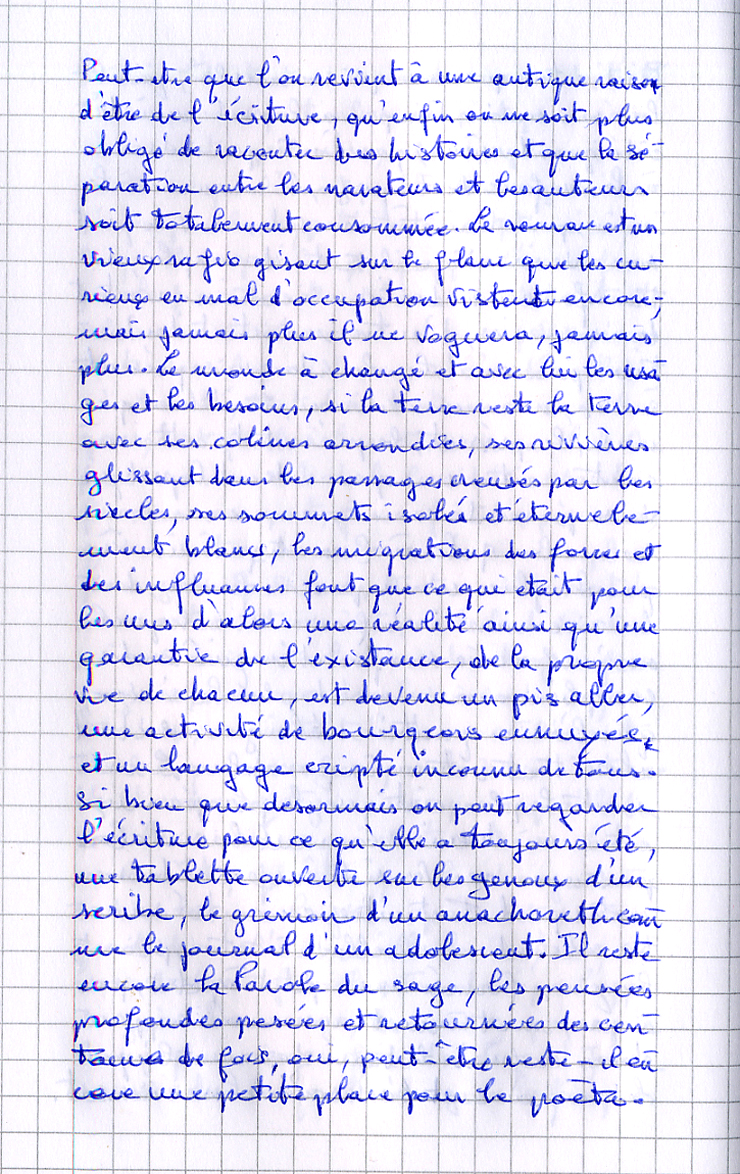 Peut-etre que l'on revvient à une antique raison
d'être de l'écriture, qu'enfin on ne soit plus
obligé de raconter des histoires et que la sé-
paration entre les narateurs et les auteurs
soit totalement consommée. Le roman est un
vieux rafio gisant sur le flanc que les cu-
rieux en mal d'occupation vistent encore,
mais jamais plus il ne voguera, jamais
plus. Le monde à changé et avec lui les usa-
ges et les besoins, si la terre reste la Terre
avec ses colines arrondies, ses rivvières
glissant dans les passages creusés par les
siecles, ses sommets isolés et éternele-
ment blancs, les migrations des forces et
des influances font que ce qui etait pour
les uns d'alors une réalité ainsi qu'une
garantie de l'existance, de la propre
vie de chacun, est devenu un pis aller,
une activité de bourgeois ennuyés,
et un langage cripté inconnu de tous.
Si bien que desormais on peut regarder
l'écriture pour ce qu'elle a toujours été,
une tablette ouverte sur les genoux d'un
scribe, le grimoir d'un anachoreth com
me le journal d'un adolescent. Il reste
encore la Parole du sage, les pensées
profondes pesées et retournées des cen-
taines de fois, oui, peut-être reste-il en
core une petite place pour le poète.